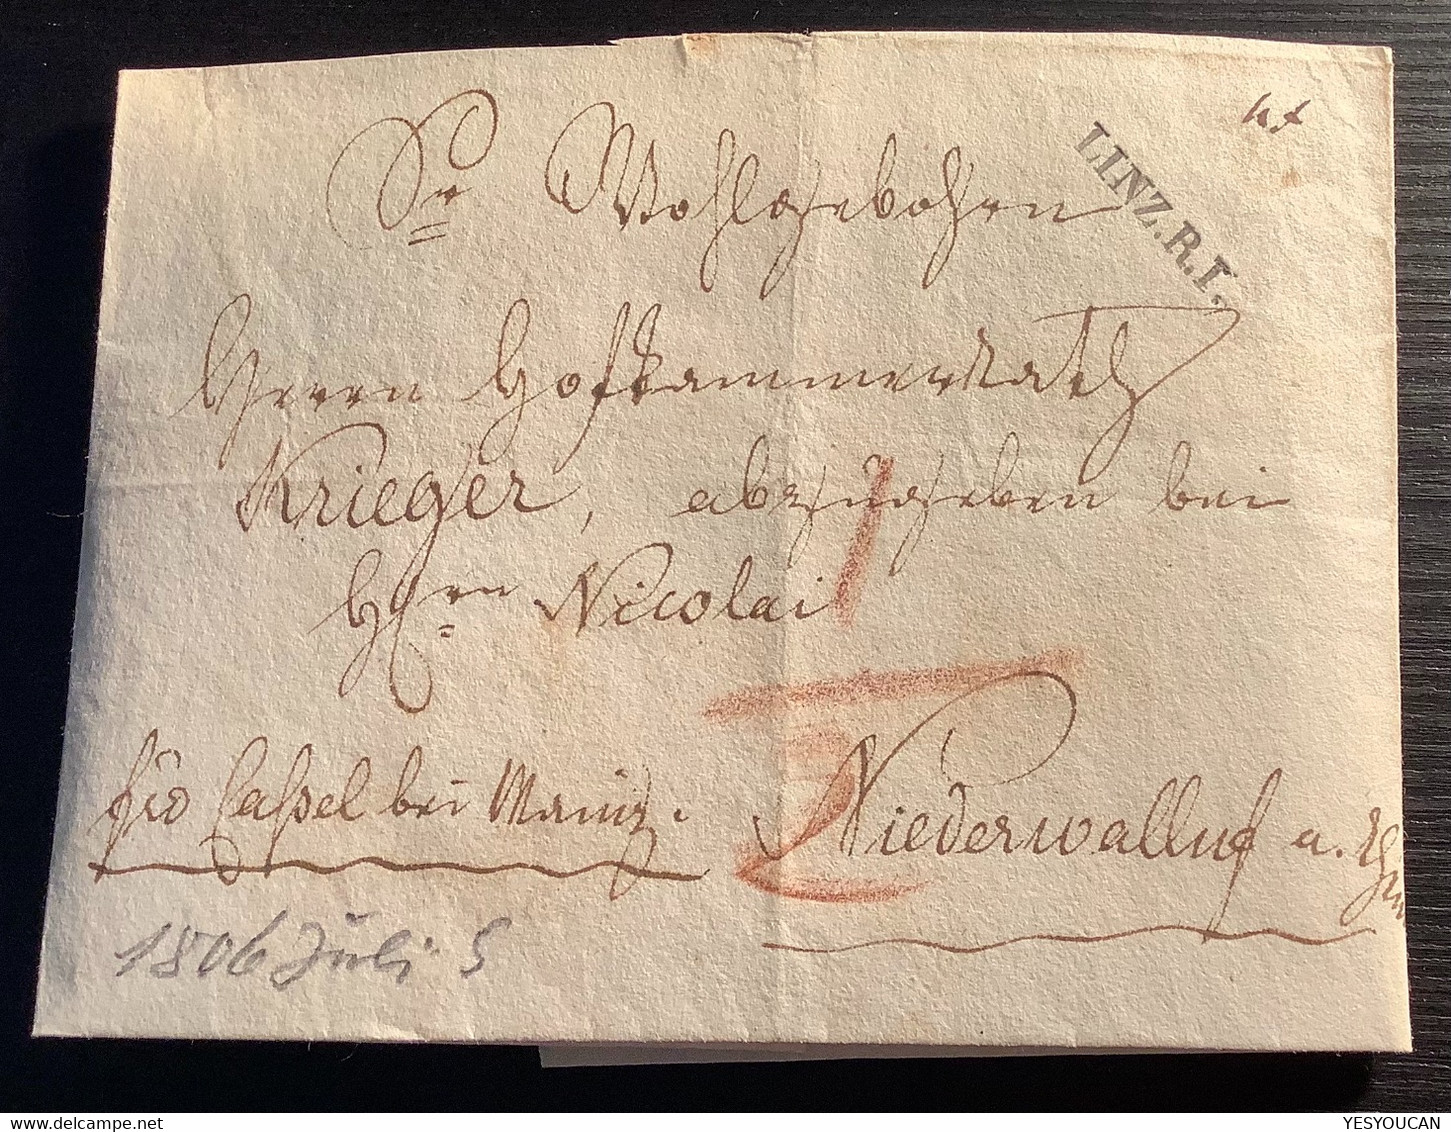 LINZ.R.I.
Sr Wohlgebohren
Herrn Hofkammerrath
Krieger, abzugeben bei
Hrn Nicolai
Cassel bei Mainz.
Niederwalluf a. Rhein
1806 Juli 5
YESYOUCAN